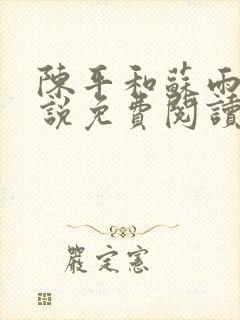 陳平和蘇雨
說免費閱讀
嚴定憲